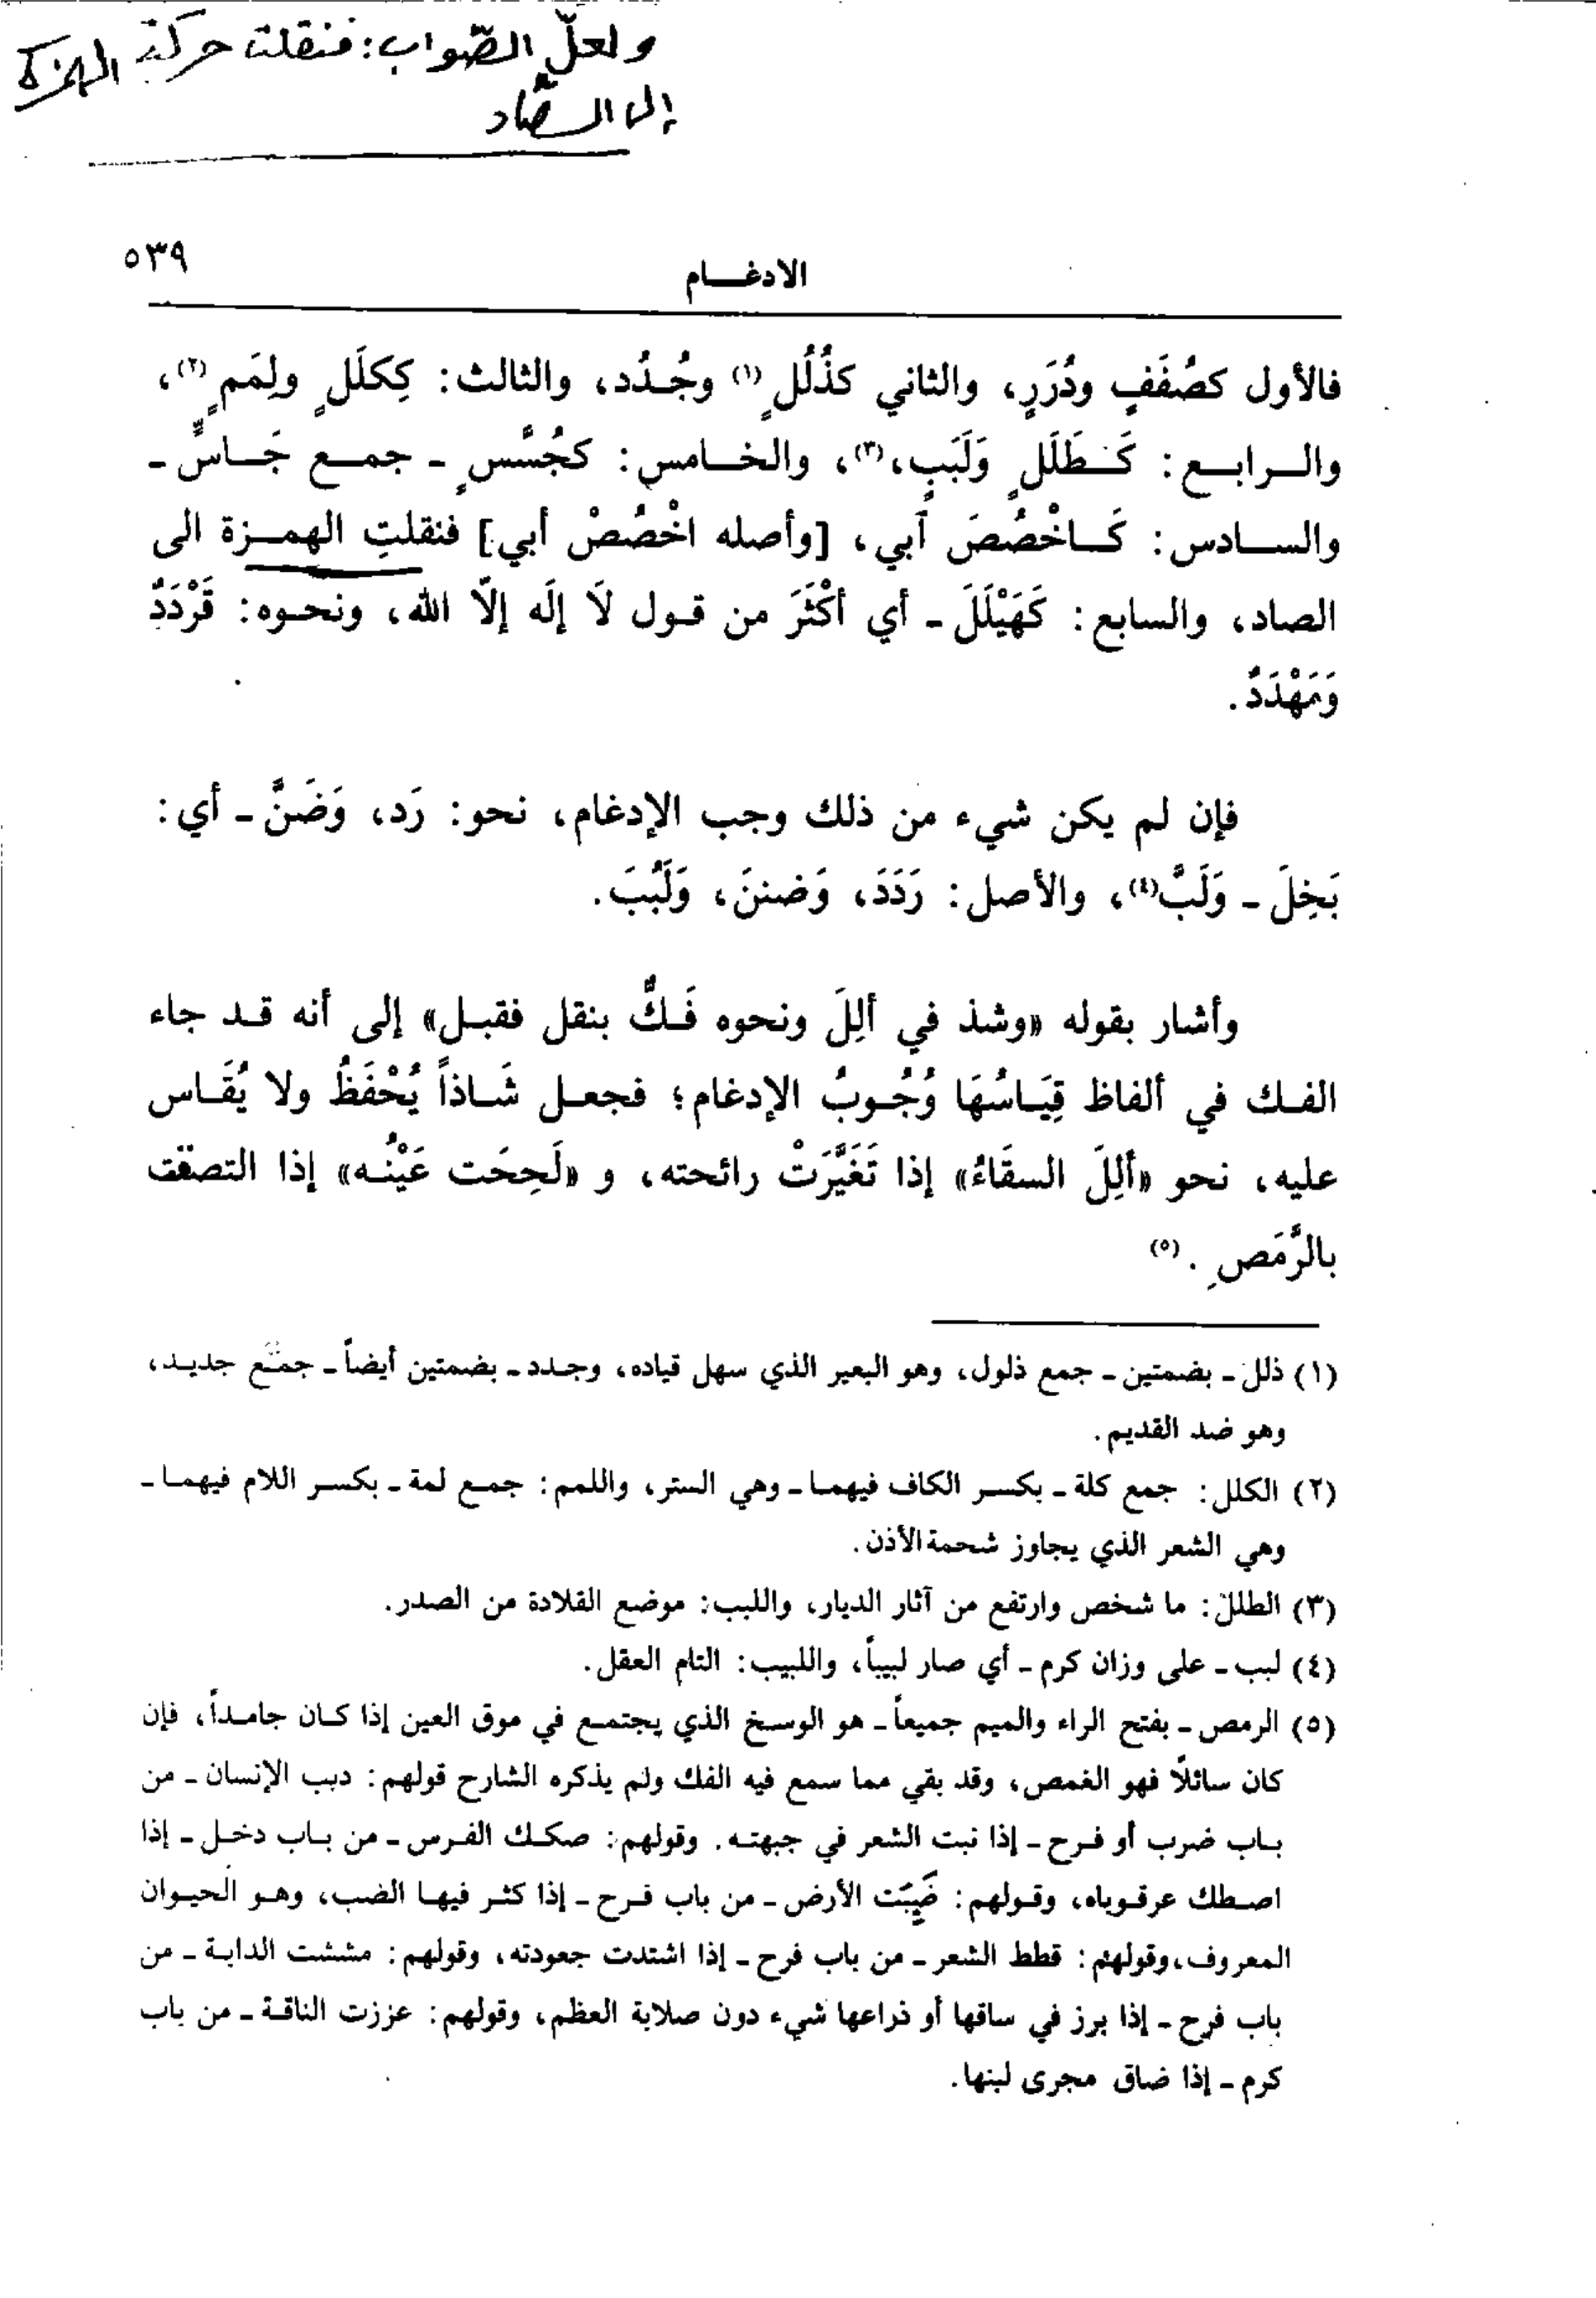 ولعلّ الصّواب: فنقلت حركة الهمزة
إلى الصّاد
٥٣٩
الادغـــام
فالأول كصُفَفٍ ودُرَرٍ، والثاني كذُلُلٍ (١) وجُـدُد، والثالث: كِكلَلٍ ولِمَمٍ (٢)،
والـــرابـــع: كَـطَلَلٍ وَلَبَبٍ،(٣)، والخــامس: كجُسَّسٍ ـ جمـــع جَـــاسٍّ ـ
والســـادس: كَـــاخْصُصَ آبي، [وأصله اخْصُصْ أبي] فنقلتِ الهمـــزة الى
الصاد، والسابع: كَهَيْلَلَ ـ أي أكْثَرَ من قـول لَا إلَه إلّا الله، ونحـوه: قَرْدَدٌ
وَمَهْدَدٌ.
فإن لم يكن شيء من ذلك وجب الإدغام، نحو: رَد، وَضَنَّ ـ أي:
بَخِلَ ـ وَلَبَّ(٤)، والأصل: رَدَدَ، وَضننَ، وَلَبُبَ.
وأشار بقوله «وشذ في ألِلَ ونحوه فَـكٌّ بنقل فقبـل» إلى أنه قـد جاء
الفـك في ألفاظ قِيَـاسُهَا وُجُـوبُ الإدغام؛ فجعـل شَـاذاً يُحْفَظُ ولا يُقَـاس
عليه، نحو «ألِلَ السقَاءُ» إذا تَغَيَّرَتْ رائحته، و «لَحِحَت عَيْنُـه» إذا التصقت
بالرَّمَصِ. (٥)
(١) ذلل ـ بضمتين ـ جمع ذلول، وهو البعير الذي سهل قياده، وجـدد ـ بضمتين أيضاً ـ جمـع جديـد،
وهو ضد القديم.
(٢) الكلل: جمع كلة ـ بكسر الكاف فيهمـا ـ وهي الستر، واللمم: جمـع لمة ـ بكسـر اللام فيهمـا ـ
وهي الشعر الذي يجاوز شحمة الأذن.
(٣) الطلل: ما شخص وارتفع من آثار الديار، واللبب: موضع القلادة من الصدر.
(٤) لبب ـ على وزان كرم ـ أي صار لبيباً، واللبيب: التام العقل.
(٥) الرمص ـ بفتح الراء والميم جميعاً ـ هو الوسـخ الذي يجتمـع في موق العين إذا كـان جامـداً، فإن
كان سائلًا فهو الغمص، وقد بقي مما سمع فيه الفك ولم يذكره الشارح قولهم: دبب الإنسان ـ من
بـاب ضرب أو فـرح ـ إذا نبت الشعر في جبهتـه. وقولهم: صكـك الفـرس ـ من بـاب دخـل ـ إذا
اصـطك عرقـوباه، وقـولهم: ضَبِبَت الأرض ـ من باب فـرح ـ إذا كثـر فيهـا الضب، وهـو الحيـوان
المعروف، وقولهم: قطط الشعر ـ من باب فرح ـ إذا اشتدت جعودته، وقولهم: مششت الدابـة ـ من
باب فرح ـ إذا برز في ساقها أو ذراعها شيء دون صلابة العظم، وقولهم: عززت الناقـة ـ من باب
كرم ـ إذا ضاق مجرى لبنها.